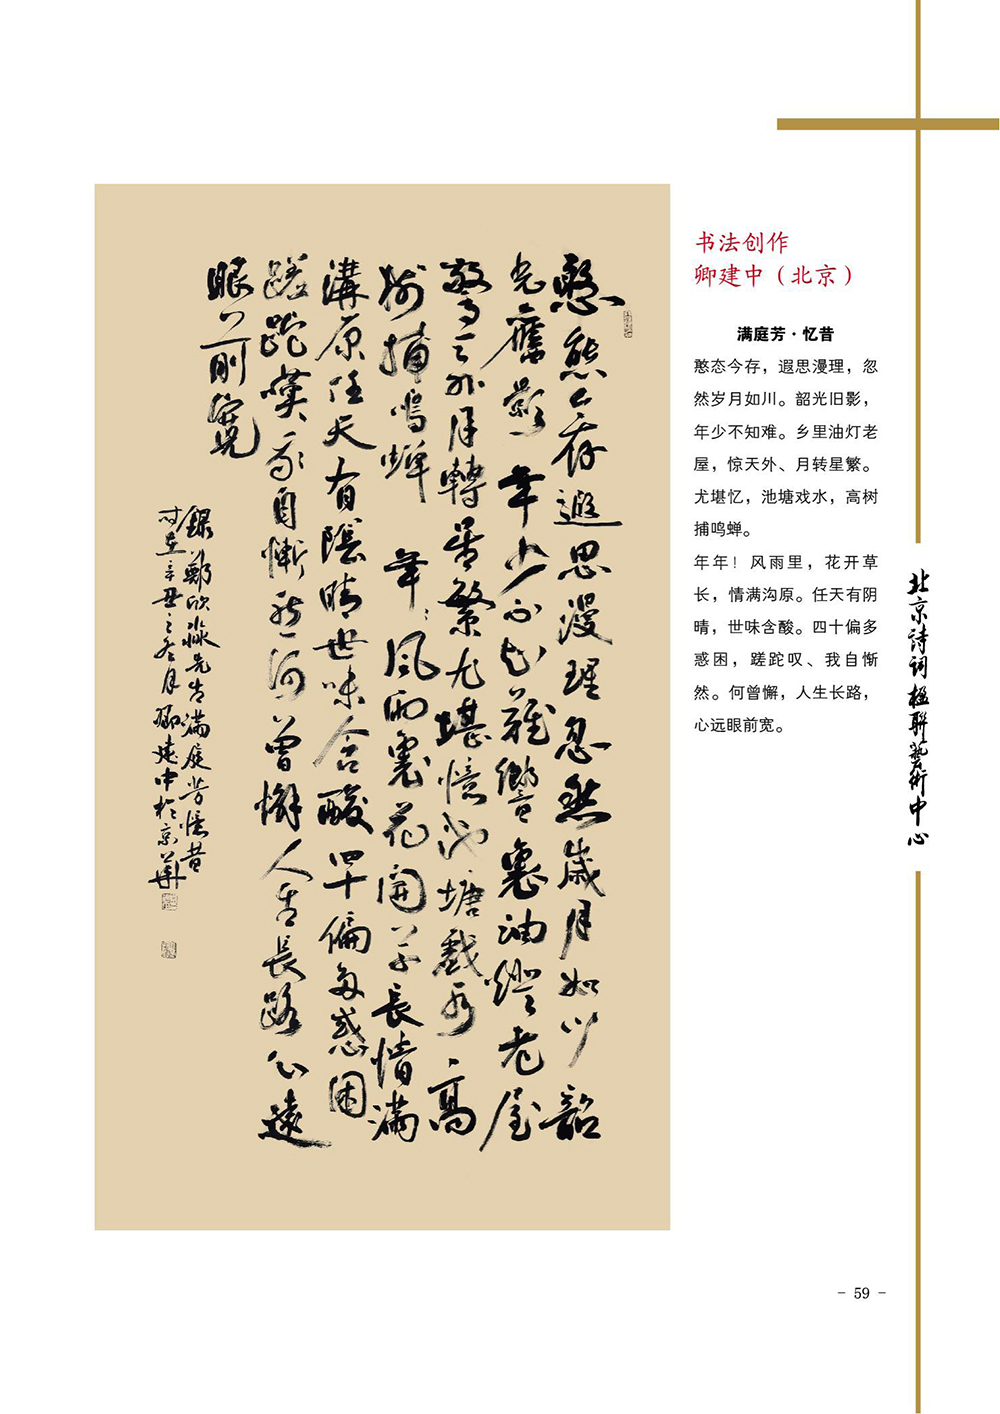 憨態今存遐思漫理忽然歲月如川韶
光舊影年少不知難鄉裏油燈老屋
驚天外月轉星繁尤堪憶池塘戲水高
樹捕鳴蟬年〻風雨裏花開草長情滿
溝原任天有陰晴世味含酸四十偏多惑困
蹉跎嘆我自慚然何曾懈人生長路心遠
眼前寬
錄鄭欣淼先生滿庭芳憶昔
时在辛丑之冬月卿建中於京華
书法创作
卿建中（北京）
满庭芳·忆昔
憨态今存，遐思漫理，忽
然岁月如川。韶光旧影，
年少不知难。乡里油灯老
屋，惊天外、月转星繁。
尤堪忆，池塘戏水，高树
捕鸣蝉。
年年！风雨里，花开草
长，情满沟原。任天有阴
晴，世味含酸。四十偏多
惑困，蹉跎叹、我自惭
然。何曾懈，人生长路，
心远眼前宽。
北京诗词楹聯藝術中心
- 59 -